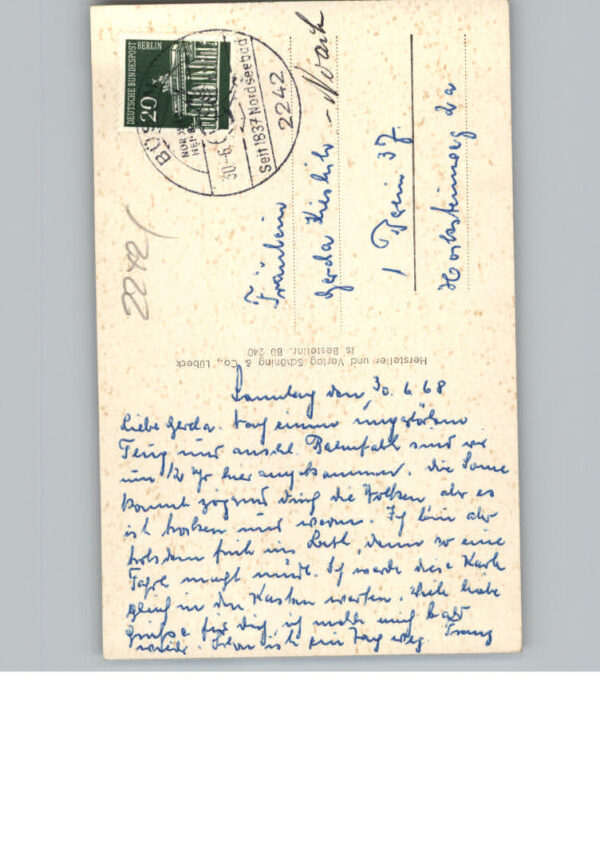 DEUTSCHE BUNDESPOST
BERLIN
20
BÜS
30.-6.
Seit 1837 Nordseebad
2242
2242/
Fräulein
Gerda - Noack
1 Berlin 37
Hersteller und Verlag Schöning & Co., Lübeck
Is Bestellnr. Bü 240
Sonntag den, 30.6.68
Liebe Gerda. Nach einem
Flug und anschl. Bahnfahrt sind wir
um 1/2 hier angekommen. Die Sonne
kommt zögernd durch die Wolken aber es
ist trocken und warm. Ich bin aber
trotzdem früh ins Bett, denn so eine
macht müde. Ich werde diese Karte
gleich in den Kasten werfen. Viele liebe
Grüße für Dich, ich melde mich bald
wieder. ist ein Tag weg. Franz